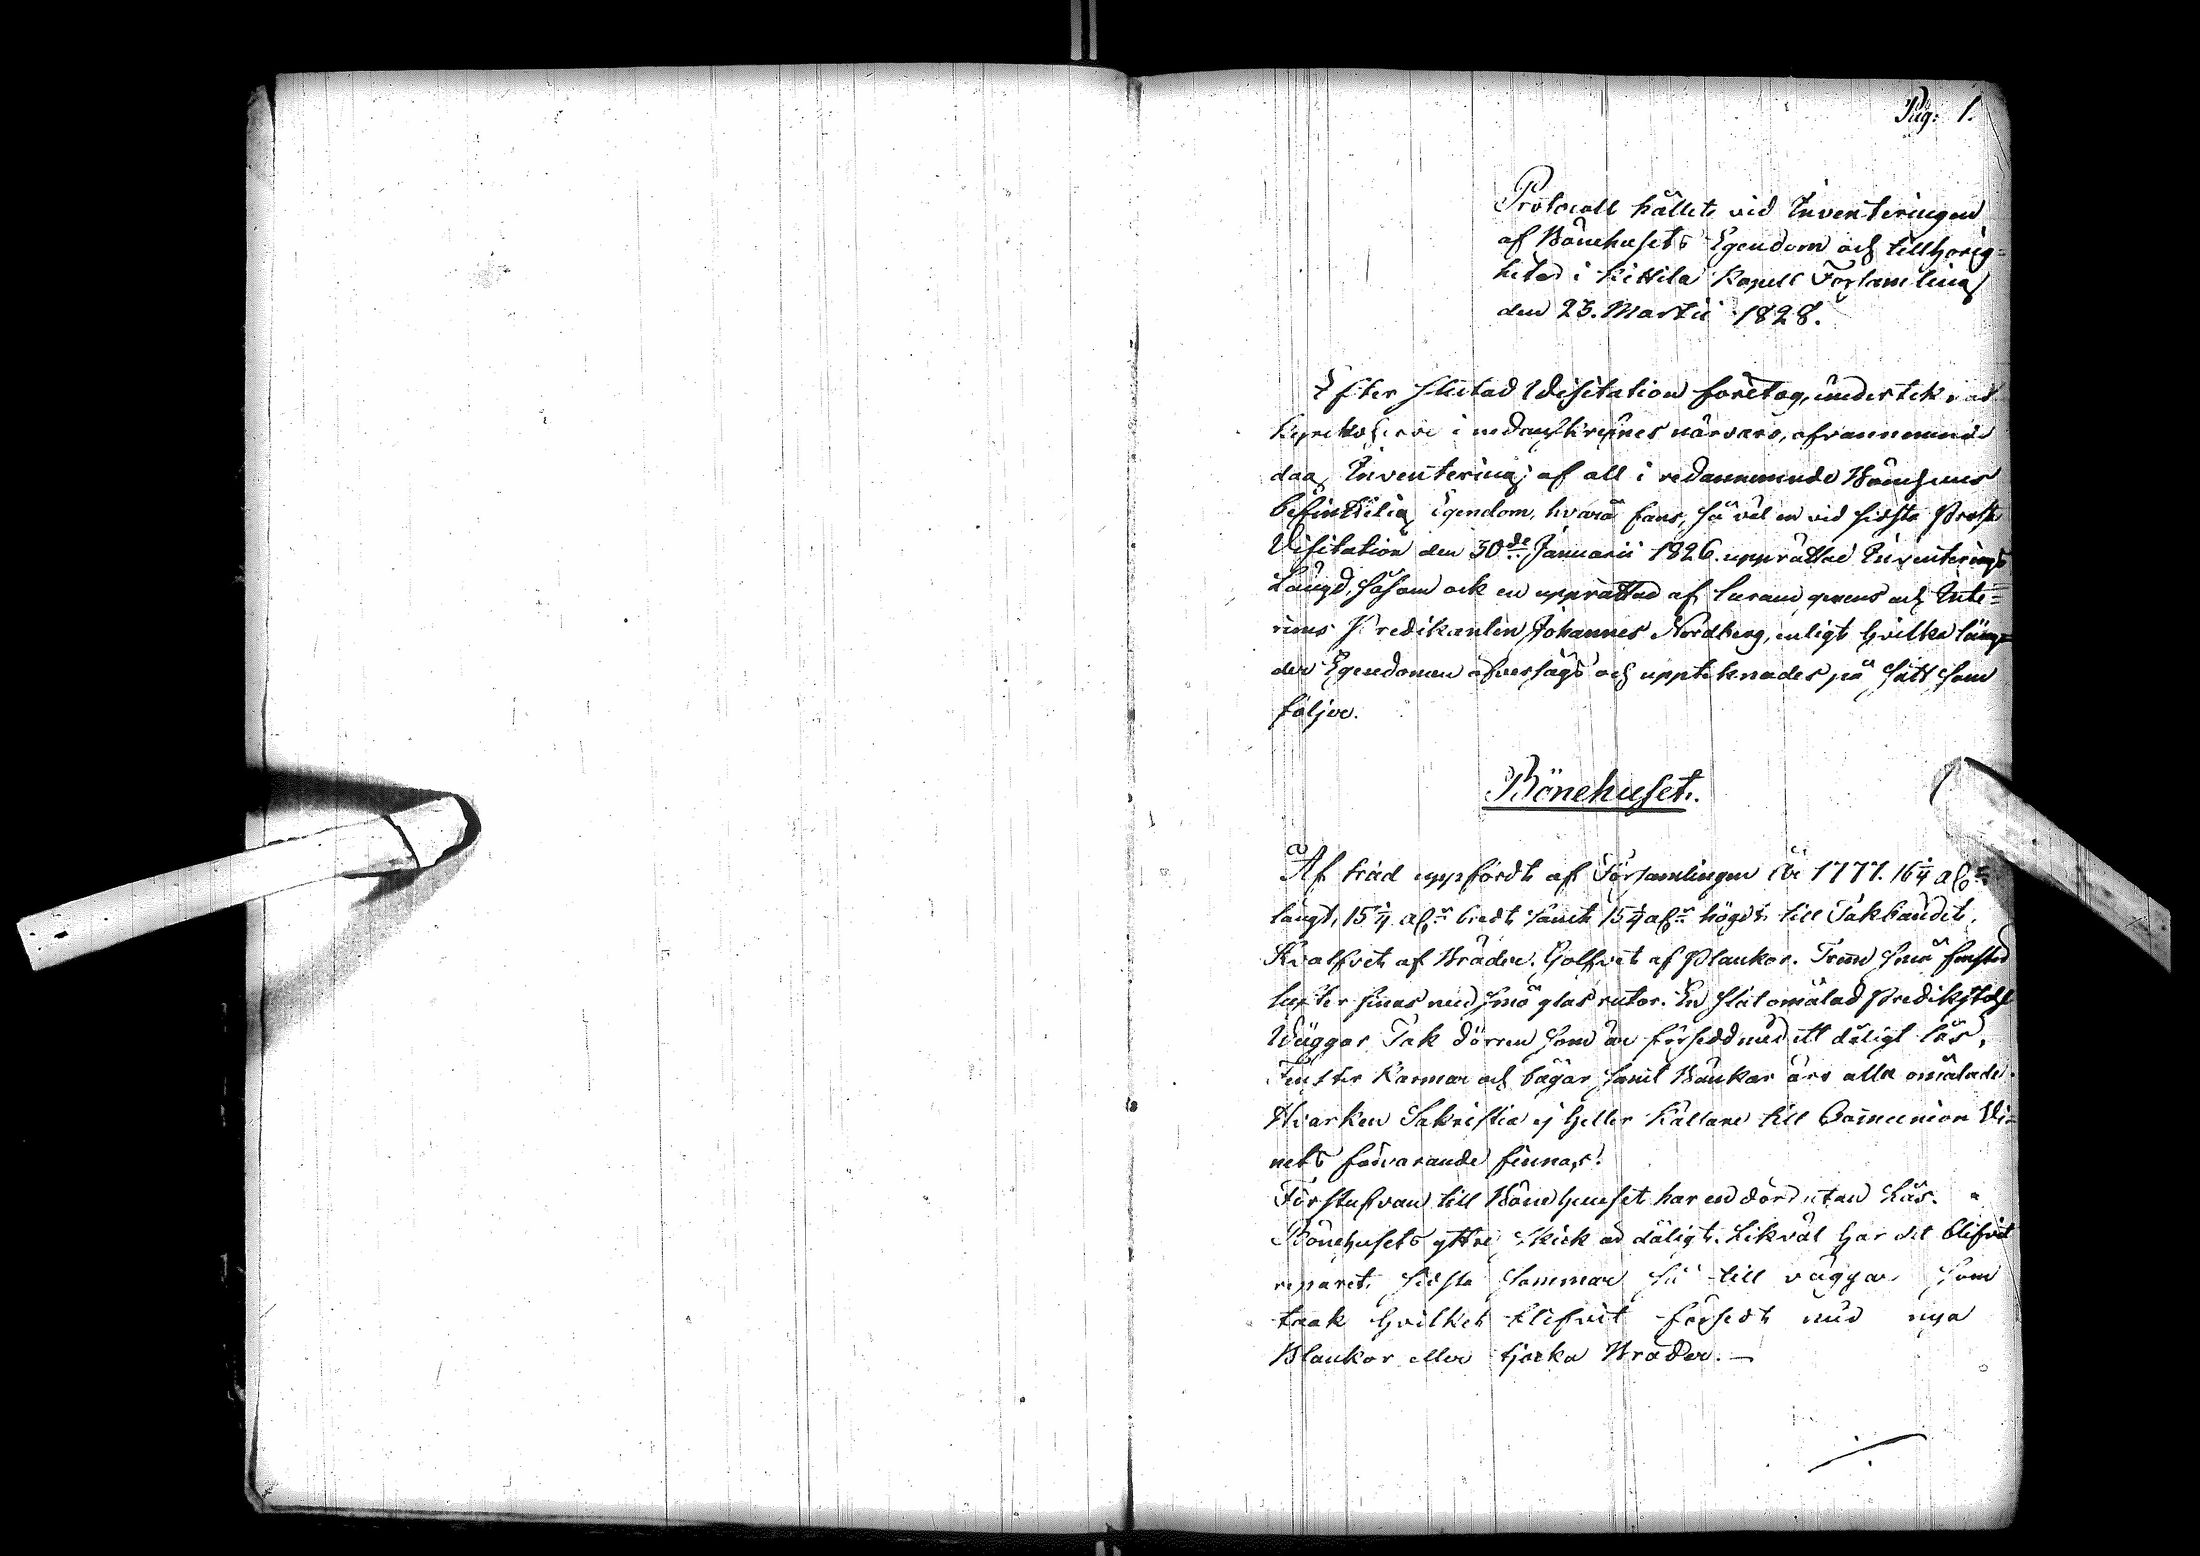 Pag: 1.
Protocoll hållit vid Inventeringen
af Bönehusets Egendom och tillhörig-
heter i Kittila Kapell Församling
den 23. Martii 1828.
Efter slutad Visitation företog, underteknad
Kyrkoherre i nedanskrefnes närvaro, ofvannemnde
dag Inventering af all i redannemnde Bönehus
befintelig egendom, hvarå fans, så väl en vid sidsta Prosts
Visitation den 30de Januarii 1826. upprättad Inventerings
Längd, såsom ock en upprättad af och Inte-
rims Predikanten Johannes Nordberg, enligt hvilka läng-
der Egendomen öfversågs och uppteknades på sätt som
följer.
Bönehuset.
Af träd uppfördt af Församlingen år 1777. 16 1/4 alnr
långt, 15 1/4 alnr bredt samt 15 1/4 alnr högdt till Takbandet,
Hvalfvet af Bräder. Golfvet af Plankor. Trenne små fenster
lufter finas med små glas rutor. En slät omålad Predikstohl
Väggar Tak dörren som är försedd med ett dåligt lås,
Fenster Karmar och bågar samt Bänkar äro alla omålade.
Hvarken Sakristia ej heller Källare till Communion Vi-
nets förvarande finnas.
Förstufvan till Bönehuset har en dörr utan Lås.
Bönehusets yttre skick är dåligt. Likväl har det blifvit
reparet sidsta Sommar så till väggar som
taak hvilket blifvit försedt med nya
Plankor eller tjocka Bräder. —